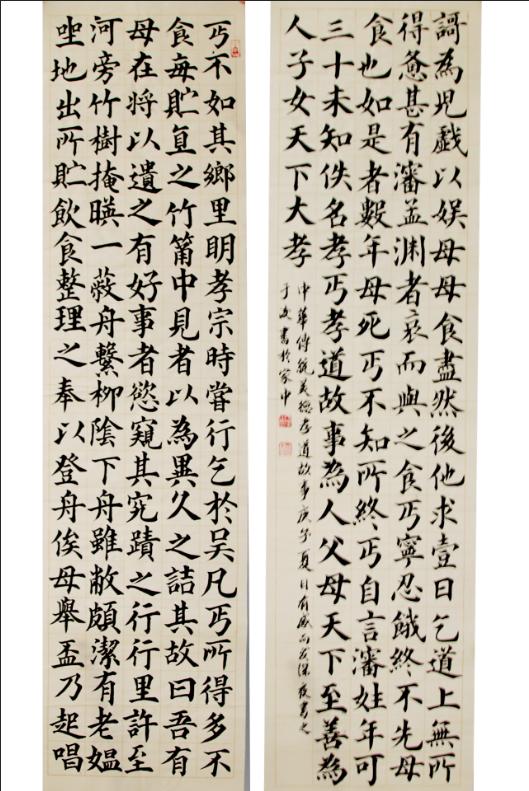 丐不如其鄉里明孝宗時嘗行乞於吳凡丐所得多不
食每貯亘之竹筩中見者以為異久之詰其故曰吾有
母在將以遺之有好事者慾窺其究蹟之行行里許至
河旁竹樹掩暎一蔽舟繫柳陰下舟雖敝頗潔有老媼
坐地出所貯飲食整理之奉以登舟俟母舉盃乃起唱
謌為児戲以娛母母食盡然後他求壹日乞道上無所
得憊甚有瀋孟渊者哀而與之食丐寧忍餓終不先母
食也如是者數年母死丐不知所終丐自言瀋姓年可
三十未知佚名孝丐孝道故事為人父母天下至善為
人子女天下大孝
中華傳統美德孝道故事庚子夏日有感而发深夜書之
于文書於家中